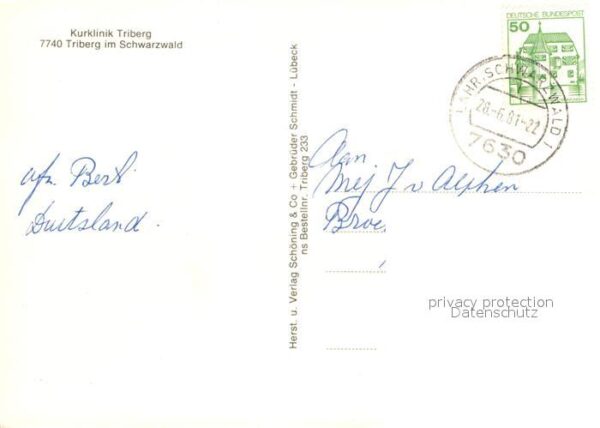 Kurklinik Triberg
7740 Triberg im Schwarzwald
afz. Bert
Duitsland.
Herst. u. Verlag Schöning & Co + Gebrüder Schmidt - Lübeck
ns Bestellnr. Triberg 233
DEUTSCHE BUNDESPOST
50
LAHR, SCHWARZWALD 1
26.-6.81-22
7630
Aan
Mej J v Alphen
Broe
privacy protection
Datenschutz